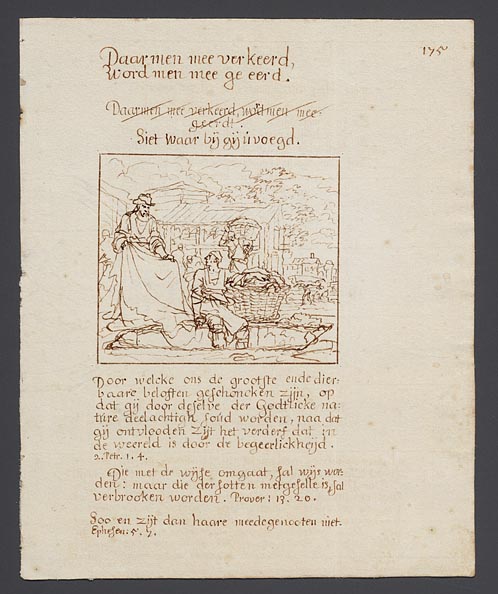 175
Daar men mee verkeerd,
Word men mee ge eerd.
Daarmen mee verkeerd, word men mee-
geerd!.
Siet waar bij gij ù voegd.
Door welcke ons de grootste ende dier-
baare beloften geschoncken zijn, op
dat gij door deselve der Godtlicke na-
tùre deelachtigh soùd worden, naa dat
gij ontvlooden zijt het verderf dat in
de weereld is door de begeerlickheijd.
2. Petr. 1. 4.
Die met de wijse omgaat, sal wijs wor-
den: maar die der sotten metgeselle is, sal
verbrooken worden. Prover: 13. 20.
Soo en zijt dan haare meedegenooten niet.
Ephesen: 5. 7.